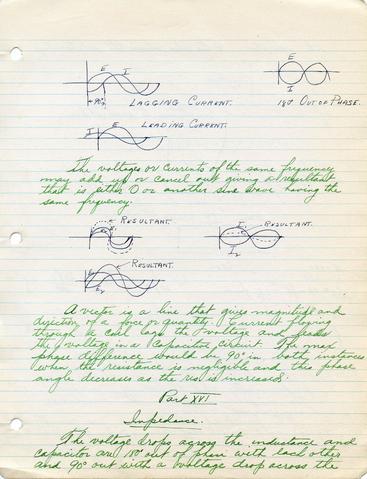 E I
90°
LAGGING CURRENT.
E
I
180° OUT OF PHASE.
I E
LEADING CURRENT.
The voltages or currents of the same frequency
may add up or cancel out giving a resultant
that is either 0 or another sine wave having the
same frequency.
RESULTANT.
RESULTANT.
RESULTANT.
A vector is a line that gives magnitude and
direction of a force or quantity. Current flowing
through a coil lags the voltage and leads
the voltage in a Capacitor Circuit. The max
phase difference would be 90° in both instances
when the resistance is negligible and this phase
angle decreases as the res is increased.
Part XVI
Impedance.
The voltage drops across the inductance and
capacitor are 180° out of phase with each other
and 90° out with a voltage drop across the